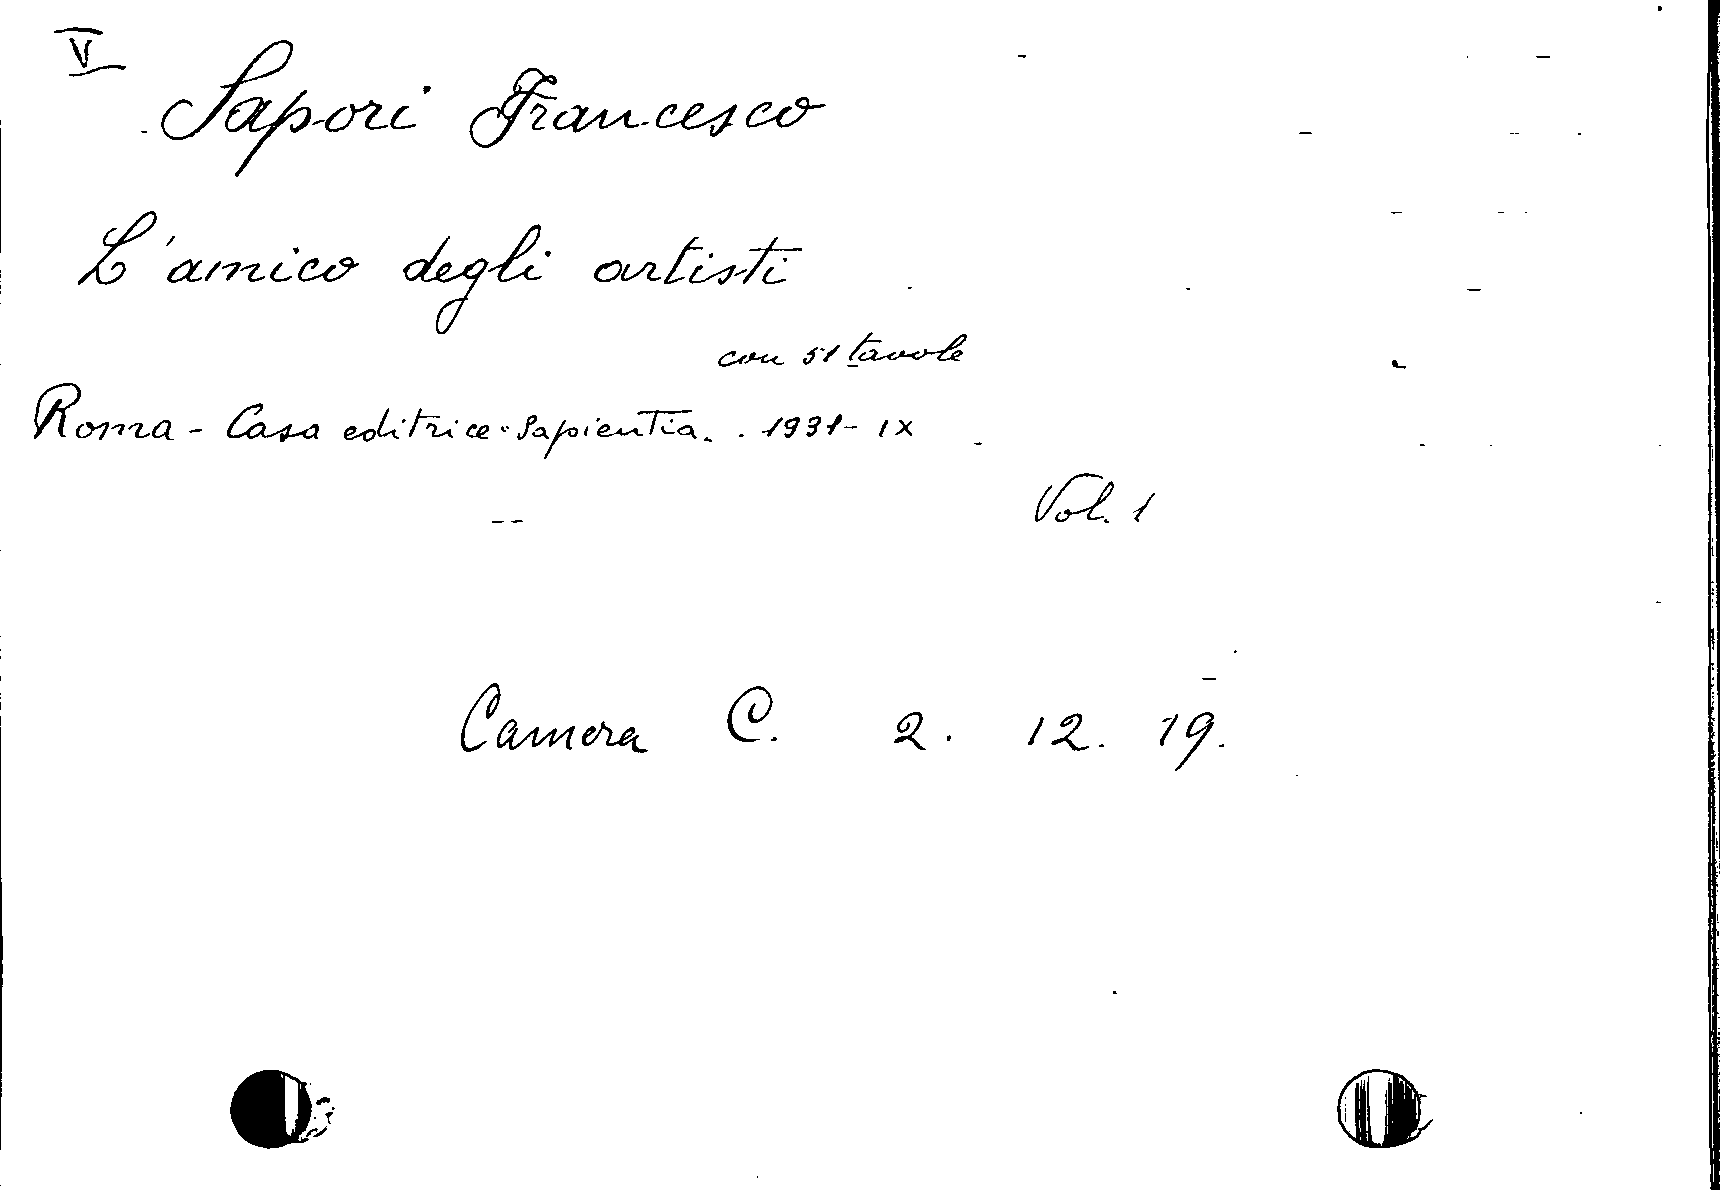 V
Sapori Francesco
L'amico degli artisti
con 51 tavole
Roma - Casa editrice "Sapientia" . 1931 - IX
Vol. 1
Camera C. 2. 12. 19.